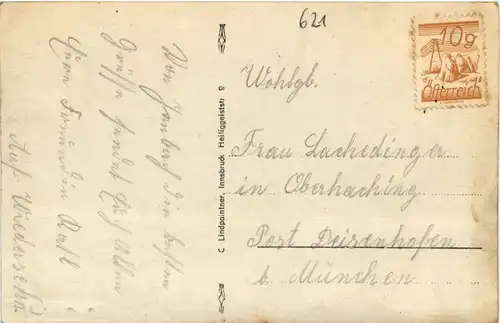 621
10g
Österreich
Wohlgb.
Frau Lachedinger
in Oberhaching
Post Deisenhofen
b. München
C. Lindpaintner, Innsbruck Heiliggeiststr 2
Von die besten
Grüße sendet Euch allen
Eure Freundin
Auf Wiedersehn